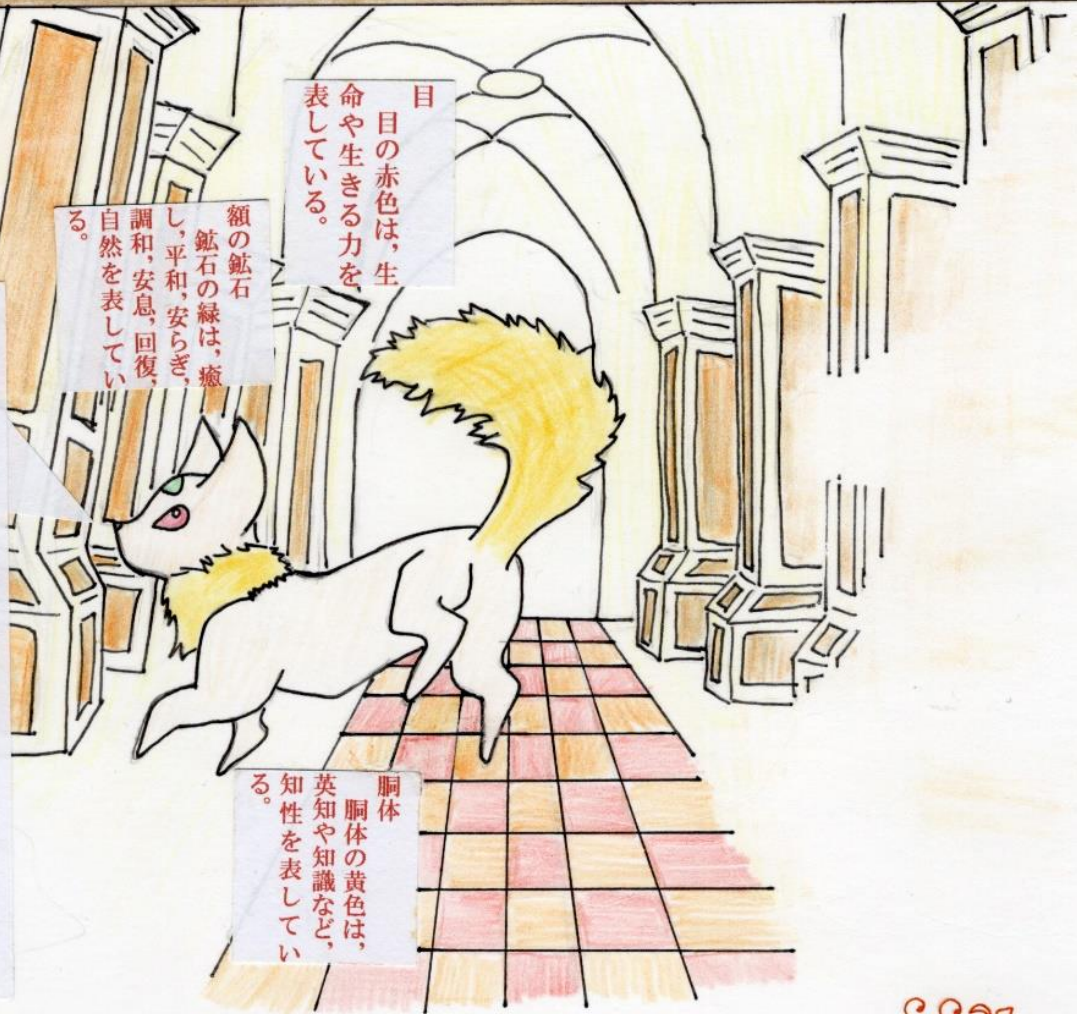 目
目の赤色は，生
命や生きる力を
表している。
額の鉱石
鉱石の緑は，癒
し，平和，安らぎ，
調和，安息，回復，
自然を表してい
る。
胴体
胴体の黄色は，
英知や知識など，
知性を表してい
る。